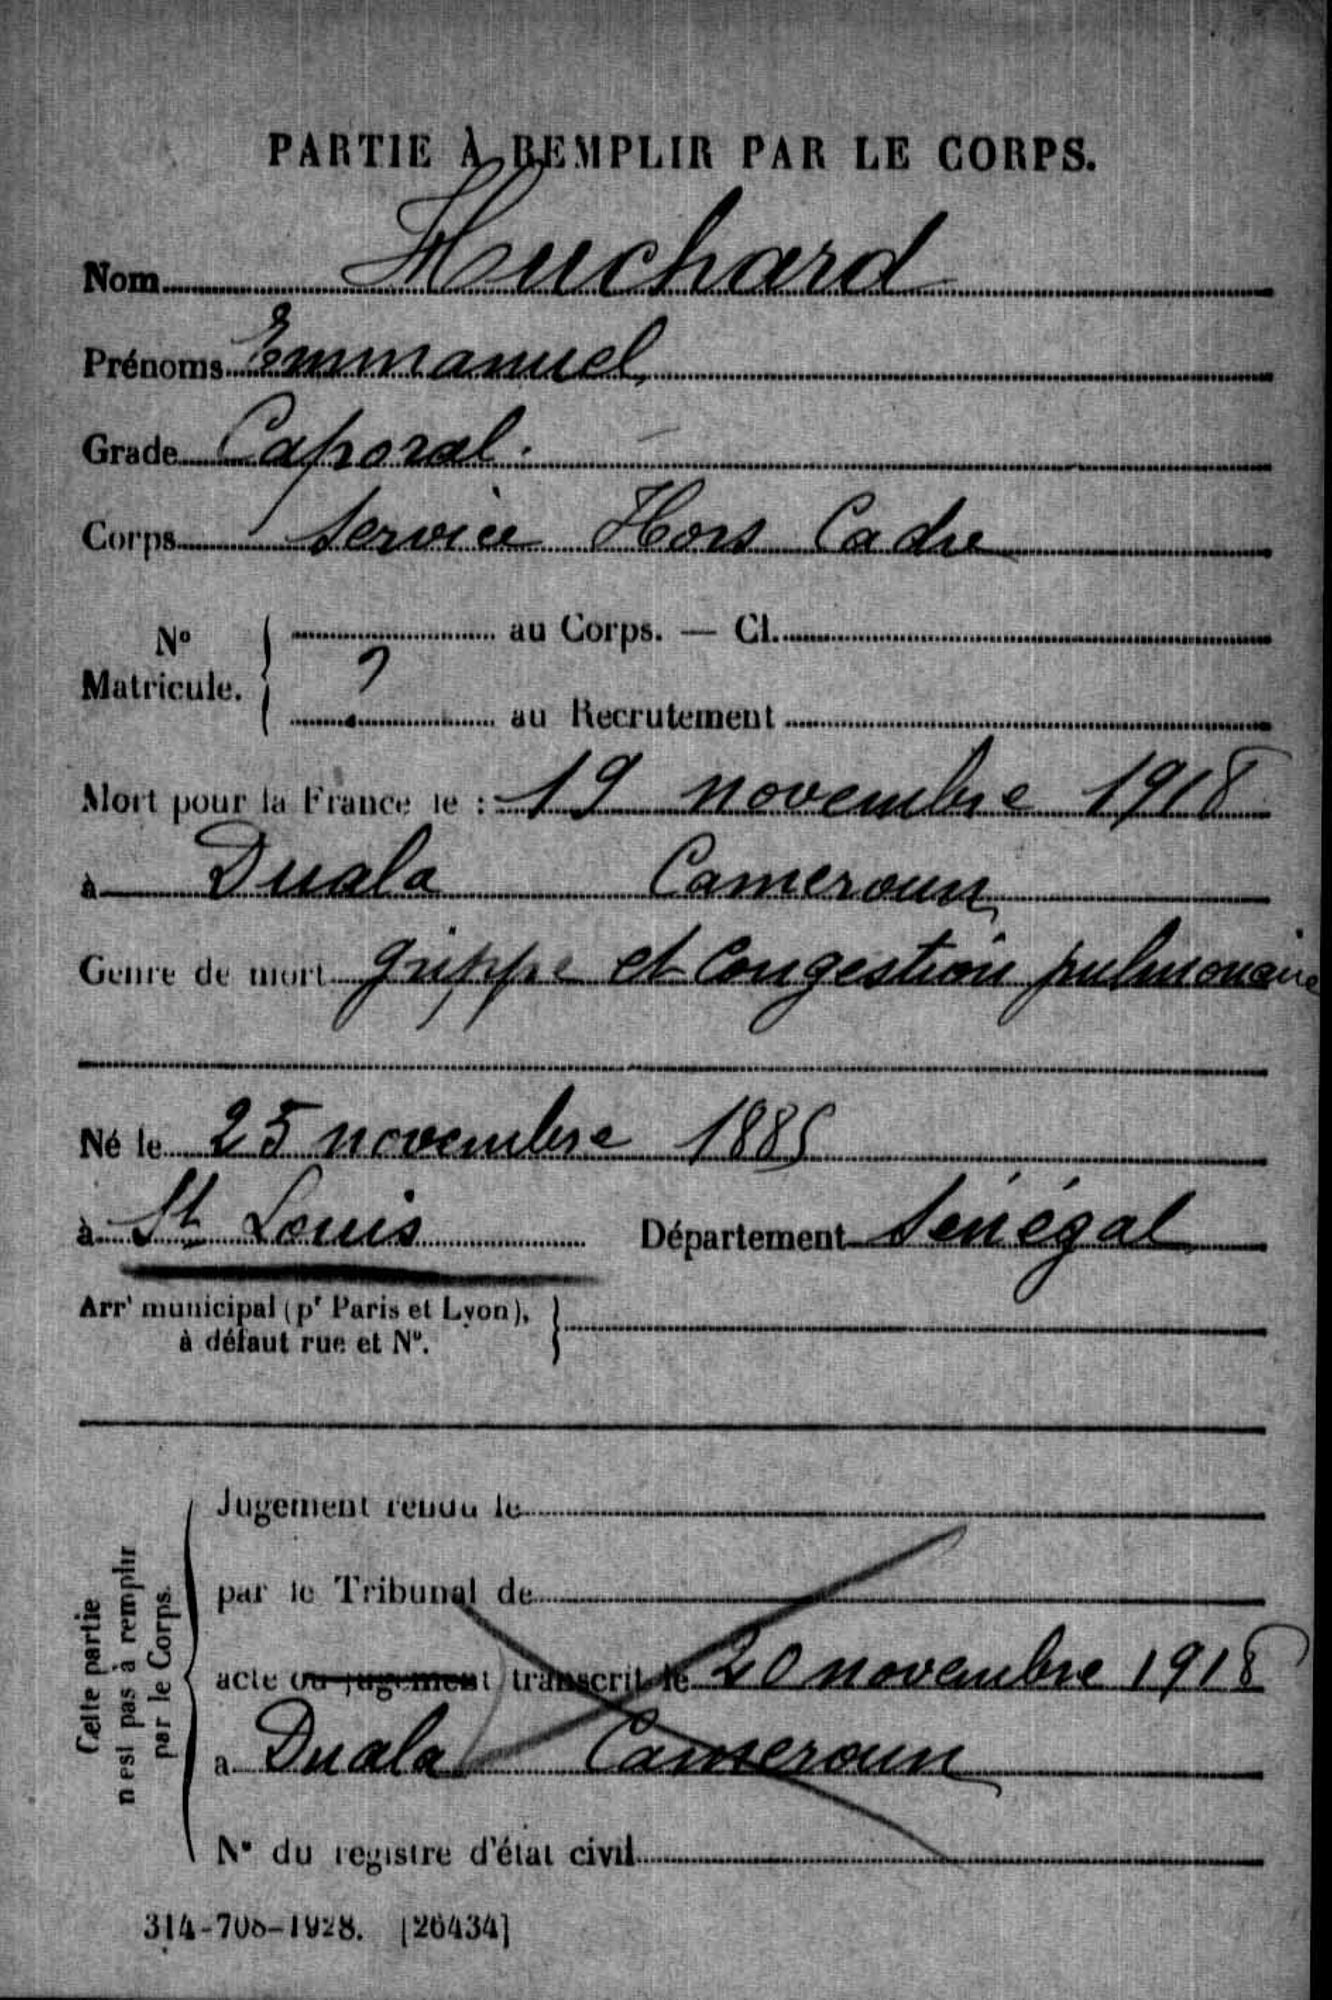 PARTIE À REMPLIR PAR LE CORPS.
Nom Huchard
Prénoms Emmanuel
Grade Caporal.
Corps Service Hors Cadre
N° Matricule. { au Corps. — Cl.
? au Recrutement
Mort pour la France le : 19 novembre 1918
à Duala Cameroun
Genre de mort grippe et congestion pulmonaire
Né le 25 novembre 1885
à St Louis Département Sénégal
Arrt municipal (pr Paris et Lyon), }
à défaut rue et N°.
Cette partie
n'est pas à remplir
par le Corps.
Jugement rendu le
par le Tribunal de
acte ou jugement transcrit le 20 novembre 1918
à Duala Cameroun
N° du registre d'état civil
314-708-1928. [26434]